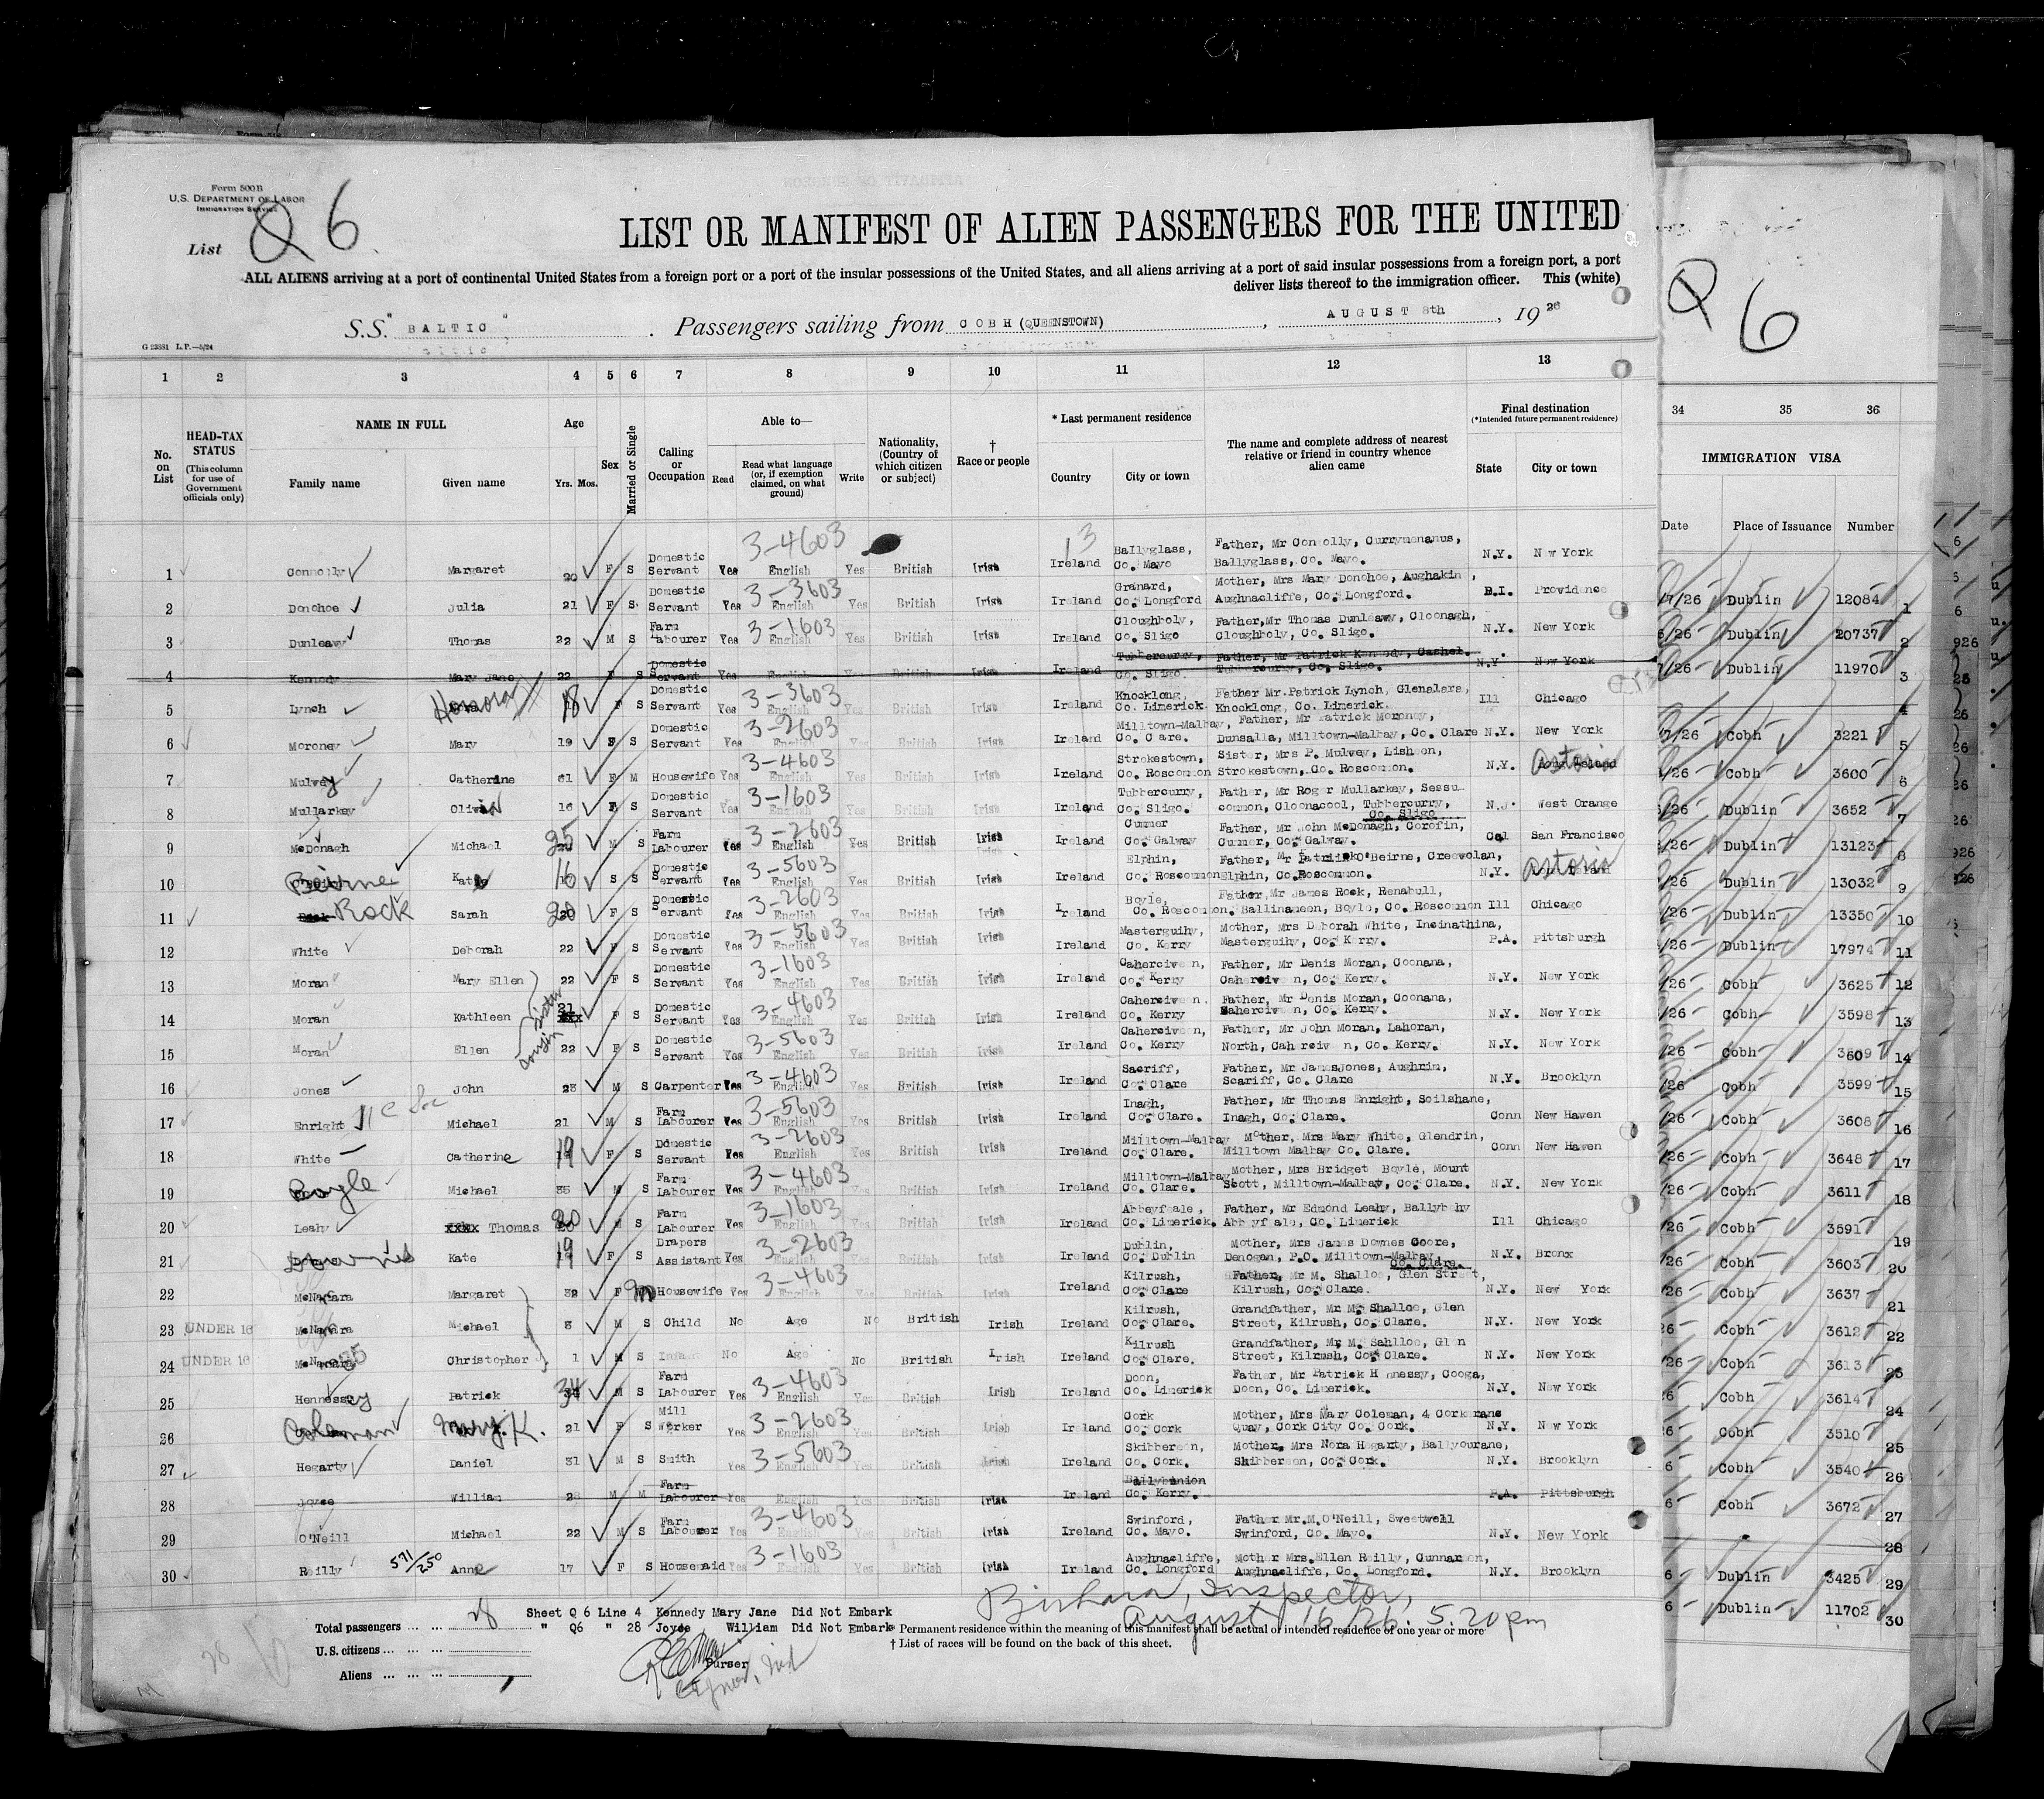 Form 500 B
U.S. DEPARTMENT OF LABOR
IMMIGRATION SERVICE
List Q 6
LIST OR MANIFEST OF ALIEN PASSENGERS FOR THE UNITED
ALL ALIENS arriving at a port of continental United States from a foreign port or a port of the insular possessions of the United States, and all aliens arriving at a port of said insular possessions from a foreign port, a port
deliver lists thereof to the immigration officer. This (white)
S.S. "BALTIC". Passengers sailing from COBH (QUEENSTOWN), AUGUST 8th, 1926
G 23881 L.P.—5/24
Q 6
1 2 3 4 5 6 7 8 9 10 11 12 13
34 35 36
No. on List
HEAD-TAX STATUS (This column for use of Government officials only)
NAME IN FULL
Family name Given name
Age
Yrs. Mos.
Sex
Married or Single
Calling or Occupation
Able to—
Read
Read what language (or, if exemption claimed, on what ground)
Write
Nationality, (Country of which citizen or subject)
† Race or people
* Last permanent residence
Country City or town
The name and complete address of nearest relative or friend in country whence alien came
Final destination
(*Intended future permanent residence)
State City or town
IMMIGRATION VISA
Date Place of Issuance Number
13
1 Connolly Margaret 20 F S Domestic Servant Yes 3-4603 English Yes British Irish Ireland Ballyglass, Co. Mayo Father, Mr Connolly, Currymenanus, Ballyglass, Co. Mayo. N.Y. N w York
2 Donohoe Julia 21 F S. Domestic Servant Yes 3-3603 English Yes British Irish Ireland Granard, Co. Longford Mother, Mrs Mary Donohoe, Aughakin, Aughnacliffe, Co. Longford. R.I. Providence
3 Dunleavy Thomas 22 M S Farm Labourer Yes 3-1603 English Yes British Irish Ireland Cloughboly, Co. Sligo Father, Mr Thomas Dunleavy, Cloonagh, Cloughboly, Co. Sligo. N.Y. New York
4 Kennedy Mary Jane 22 F S Domestic Servant Yes English Yes British Irish Ireland Tubbercurry, Co. Sligo. Father, Mr Patrick Kennedy, Cashel. Tubbercurry, Co. Sligo. N.Y New York
5 Lynch Honora 18 F S Domestic Servant Yes 3-3603 English Yes British Irish Ireland Knocklong, Co. Limerick. Father Mr. Patrick Lynch, Glenalera, Knocklong, Co. Limerick. Ill Chicago
6 Moroney Mary 19 S Domestic Servant Yes 3-2603 English Yes British Irish Ireland Milltown-Malbay, Co. Clare. Father, Mr Patrick Moroney, Dunsalla, Milltown-Malbay, Co. Clare N.Y. New York
7 Mulvey Catherine 61 F M Housewife Yes 3-4603 English Yes British Irish Ireland Strokestown, Co. Roscommon Sister, Mrs P. Mulvey, Lisheen, Strokestown, Co. Roscommon. N.Y. Astoria
8 Mullarkey Olivia 16 F S Domestic Servant Yes 3-1603 English Yes British Irish Ireland Tubbercurry, Co. Sligo. Father, Mr Roger Mullarkey, Sessucommon, Cloonacool, Tubbercurry, Co. Sligo N.J. West Orange
9 McDonagh Michael 25 M S Farm Labourer Yes 3-2603 English Yes British Irish Ireland Cummer Co. Galway Father, Mr John McDonagh, Corofin, Cummer, Co. Galway. Cal San Francisco
10 Beirne Katie 16 S S Domestic Servant Yes 3-5603 English Yes British Irish Ireland Elphin, Co. Roscommon Father, Mr Patrick O'Beirne, Creevolan, Elphin, Co. Roscommon. N.Y. Astoria
11 Rock Sarah 20 F S Domestic Servant Yes 3-2603 English Yes British Irish Ireland Boyle, Co. Roscommon. Father, Mr James Rock, Renabull, Ballinameen, Boyle, Co. Roscommon Ill Chicago
12 White Deborah 22 F S Domestic Servant Yes 3-5603 English Yes British Irish Ireland Masterguihy, Co. Kerry Mother, Mrs Deborah White, Incinathina, Masterguihy, Co. Kerry. P.A. Pittsburgh
13 Moran Mary Ellen 22 F S Domestic Servant Yes 3-1603 English Yes British Irish Ireland Caherciveen, Co. Kerry Father, Mr Denis Moran, Coonana, Caherciv n, Co. Kerry. N.Y. New York
sister
14 Moran Kathleen 21 F S Domestic Servant Yes 3-4603 English Yes British Irish Ireland Caherciveen. Co. Kerry Father, Mr Denis Moran, Coonana, Caherciveen, Co. Kerry. N.Y. New York
cousin
15 Moran Ellen 22 F S Domestic Servant Yes 3-5603 English Yes British Irish Ireland Caherciveen, Co. Kerry Father, Mr John Moran, Lahoran, North, Cah rciv n, Co. Kerry. N.Y. New York
16 Jones John 28 M S Carpenter Yes 3-4603 English Yes British Irish Ireland Sacriff, Co. Clare Father, Mr JamesJones, Aughrim, Scariff, Co. Clare N.Y. Brooklyn
17 Enright Michael 21 M S Farm Labourer Yes 3-5603 English Yes British Irish Ireland Inagh, Co. Clare. Father, Mr Thomas Enright, Soilshane, Inagh, Co. Clare. Conn New Haven
18 White Catherine 19 F S Domestic Servant Yes 3-2603 English Yes British Irish Ireland Milltown-Malbay Co. Clare. Mother, Mrs Mary White, Glendrin, Milltown Malbay Co. Clare. Conn New Haven
19 Boyle Michael 35 M S Farm Labourer Yes 3-4603 English Yes British Irish Ireland Milltown-Malbay, Co. Clare. Mother, Mrs Bridget Boyle, Mount Scott, Milltown-Malbay, Co. Clare. N.Y. New York
20 Leahy xxxx Thomas 20 M S Farm Labourer Yes 3-1603 English Yes British Irish Ireland Abbeyfeale, Co. Limerick. Father, Mr Edmond Leahy, Ballybehy Abb yf ale, Co. Limerick Ill Chicago
21 Kate 19 F S Drapers Assistant Yes 3-2603 English Yes British Irish Ireland Dublin, Co. Dublin Mother, Mrs James Downes Coore, Denogan, P.O. Milltown-Malbay, Co. Clare. N.Y. Bronx
22 McNamara Margaret 32 F M Housewife Yes 3-4603 English Yes British Irish Ireland Kilrush, Co. Clare Father, Mr M. Shalloe, Glen Street, Kilrush, Co. Clare. N.Y. New York
23 UNDER 16 McNamara Michael 8 M S Child No Age No British Irish Ireland Kilrush, Co. Clare. Grandfather, Mr M. Shalloe, Glen Street, Kilrush, Co. Clare. N.Y. New York
24 UNDER 16 McNamara Christopher 1 M S Infant No Age No British Irish Ireland Kilrush Co. Clare. Grandfather, Mr M. Sahlloe, Gl n Street, Kilrush, Co. Clare. N.Y. New York
25 Hennessey Patrick 34 M S Farm Labourer Yes 3-4603 English Yes British Irish Ireland Doon, Co. Limerick Father, Mr Patrick H nnessy, Cooga, Doon, Co. Limerick. N.Y. New York
26 Coleman Mary. K. 21 F S Mill Worker Yes 3-2603 English Yes British Irish Ireland Cork Co. Cork Mother, Mrs Mary Coleman, 4 Cork rans Quay, Cork City Co. Cork. N.Y. N w York
27 Hegarty Daniel 31 M S Smith Yes 3-5603 English Yes British Irish Ireland Skibbereen, Co. Cork. Mother. Mrs Nora Hegarty, Ballyourane, Skibbereen, Co. Cork. N.Y. Brooklyn
28 Joyce William 28 M M Farm Labourer Yes English Yes British Irish Ireland Ballybunion Co. Kerry. P.A. Pittsburgh
29 O'Neill Michael 22 M S Farm Labourer Yes 3-4603 English Yes British Irish Ireland Swinford, Co. Mayo. Father Mr. M. O'Neill, Sweetwell Swinford, Co. Mayo. N.Y. New York
30 Reilly 571/250 Anne 17 F S Housemaid Yes 3-1603 English Yes British Irish Ireland Aughnacliffe, Co. Longford Mother Mrs. Ellen Reilly, Cunnareen, Aughnacliffe, Co. Longford. N.Y. Brooklyn
/26 Dublin 12084 1
/26 Dublin 20737 2
/26 Dublin 11970 3
4
/26 Cobh 3221 5
/26 Cobh 3600 6
/26 Dublin 3652 7
/26 Dublin 13123 8
/26 Dublin 13032 9
/26 Dublin 13350 10
/26 Dublin 17974 11
/26 Cobh 3625 12
/26 Cobh 3598 13
/26 Cobh 3609 14
/26 Cobh 3599 15
/26 Cobh 3608 16
/26 Cobh 3648 17
/26 Cobh 3611 18
/26 Cobh 3591 19
/26 Cobh 3603 20
/26 Cobh 3637 21
26 Cobh 3612 22
26 Cobh 3613 23
26 Cobh 3614 24
6 Cobh 3510 25
6 Cobh 3540 26
6 Cobh 3672 27
28
6 Dublin 3425 29
6 Dublin 11702 30
Total passengers ... ... 28
U.S. citizens ... ... ...
Aliens ... ... ...
Sheet Q 6 Line 4 Kennedy Mary Jane Did Not Embark
" Q6 " 28 Joyce William Did Not Embark
Purser
Inspector,
August 16/26. 5.20 pm
* Permanent residence within the meaning of this manifest shall be actual or intended residence of one year or more
† List of races will be found on the back of this sheet.